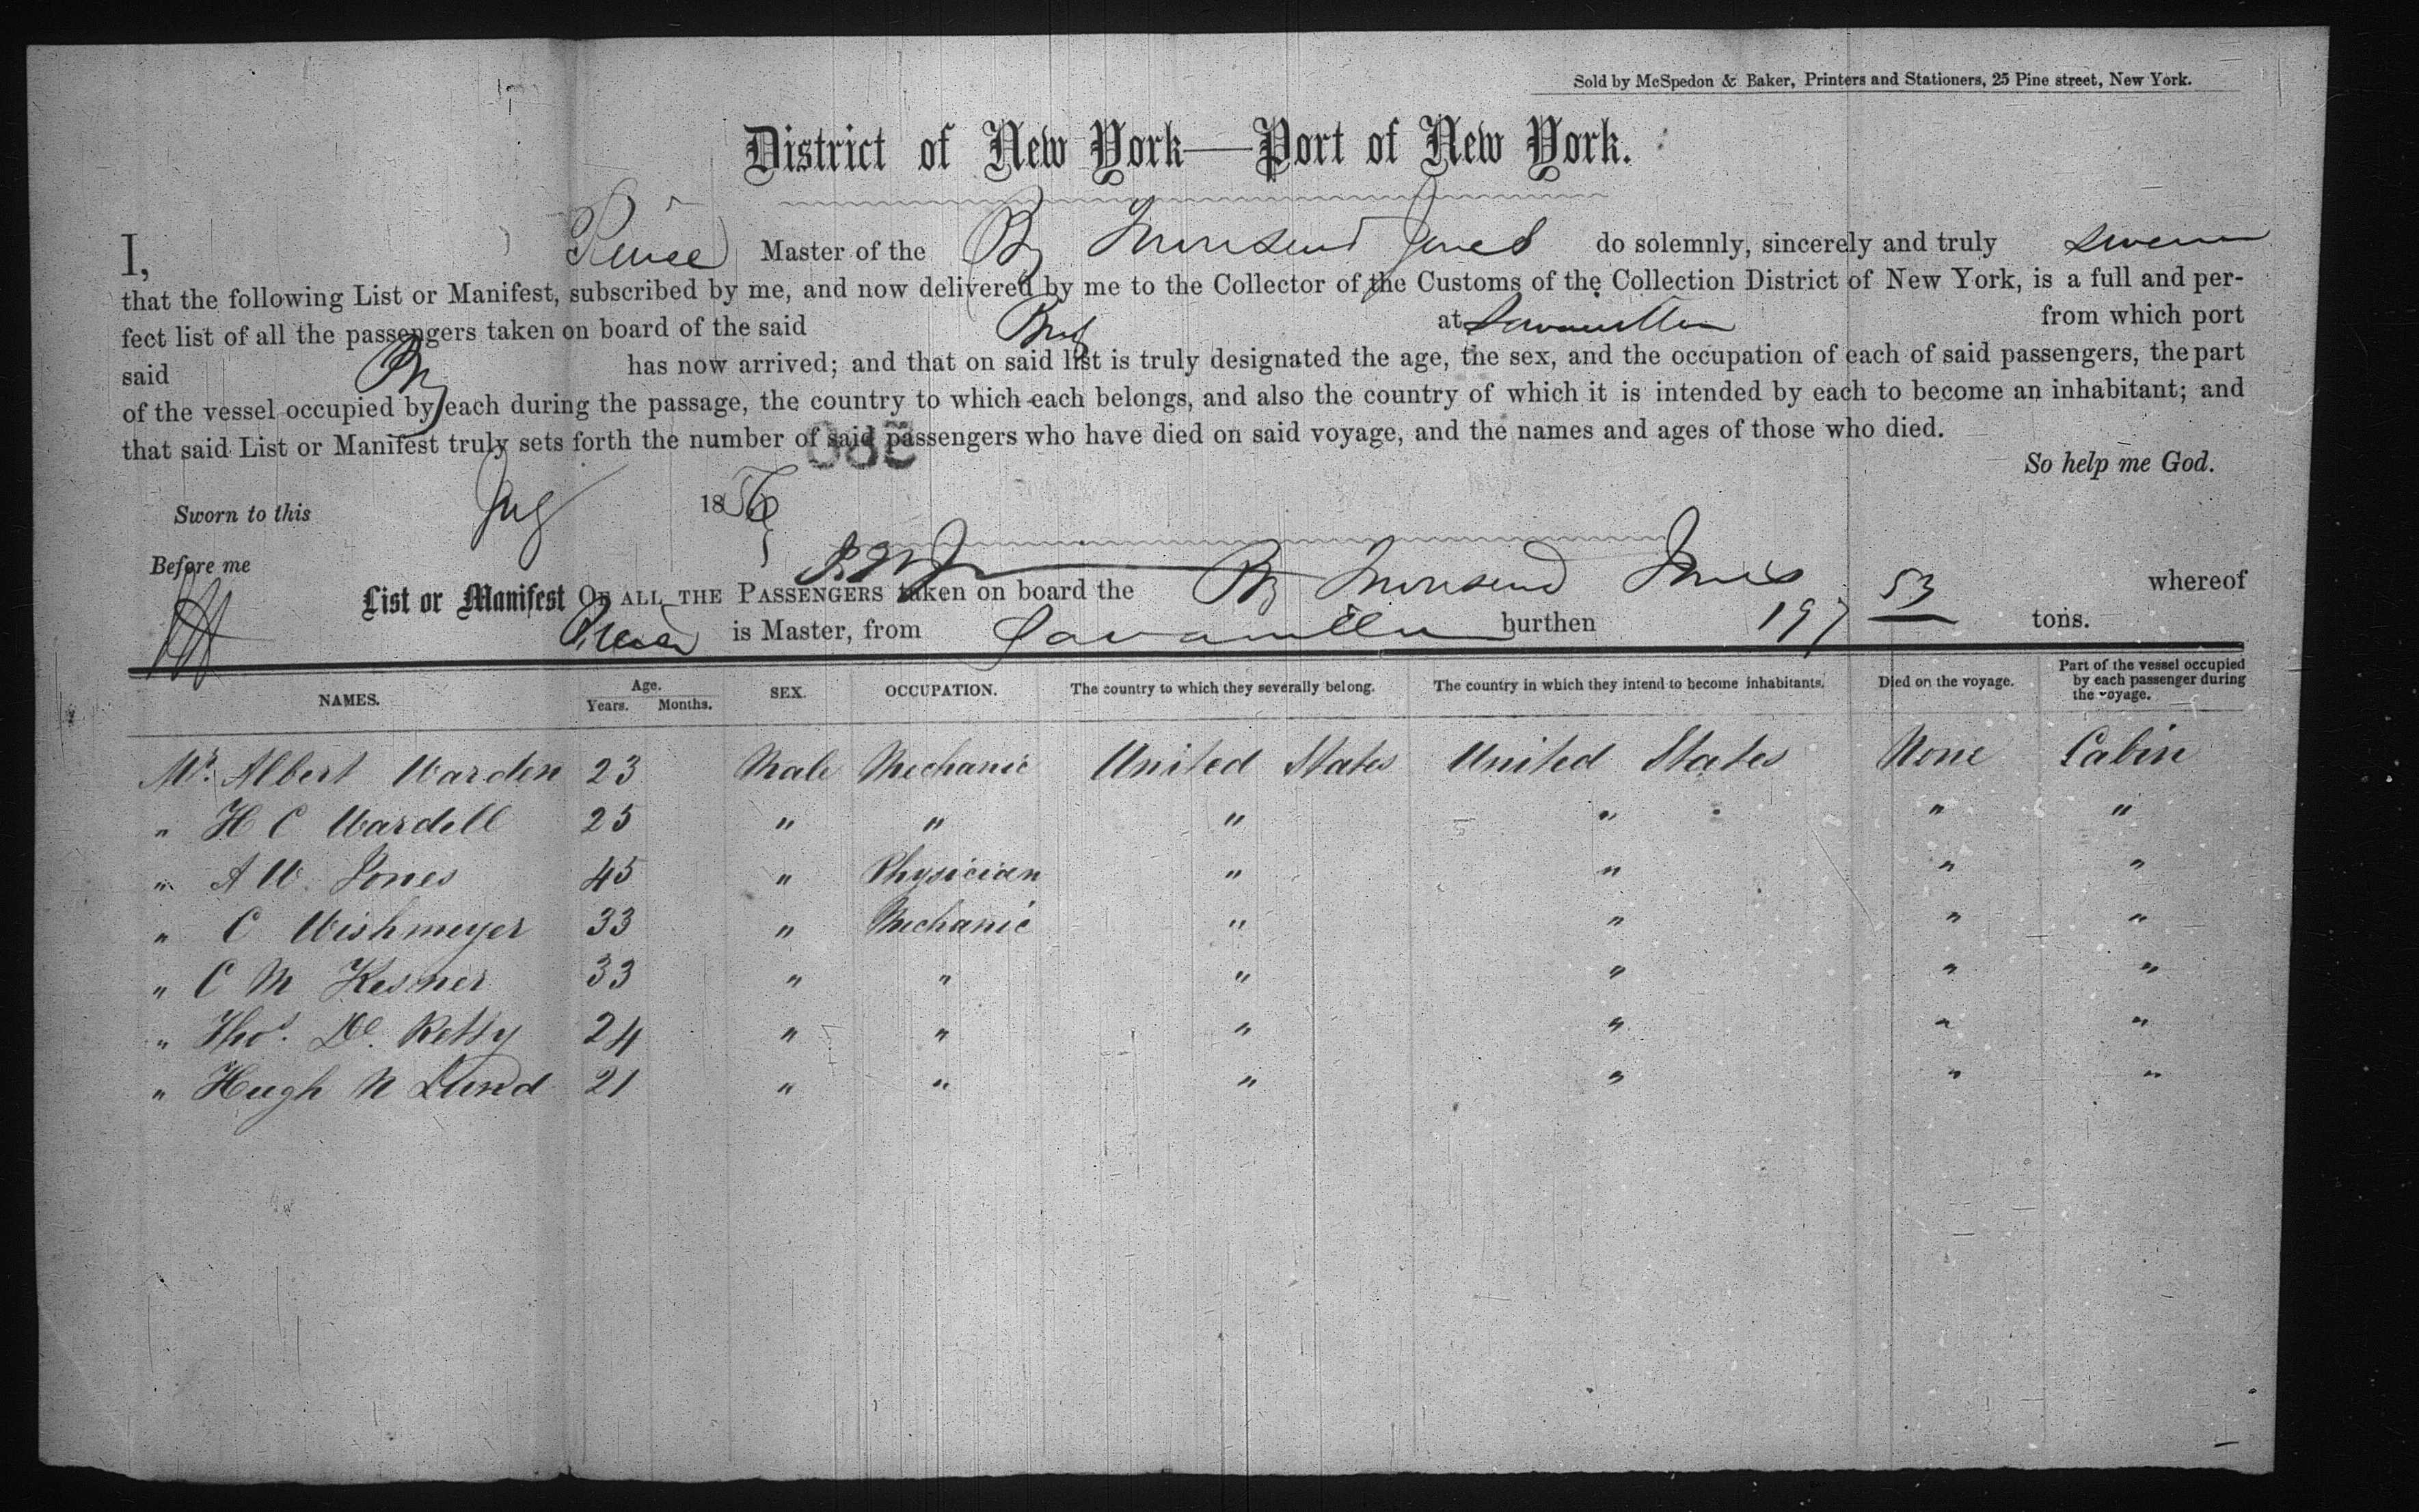 Sold by McSpedon & Baker, Printers and Stationers, 25 Pine street, New York.
District of New York—Port of New York.
I, Master of the Bg Townsend Jones do solemnly, sincerely and truly swear
that the following List or Manifest, subscribed by me, and now delivered by me to the Collector of the Customs of the Collection District of New York, is a full and per-
fect list of all the passengers taken on board of the said Brig at Savanilla from which port
said Bg has now arrived; and that on said list is truly designated the age, the sex, and the occupation of each of said passengers, the part
of the vessel occupied by each during the passage, the country to which each belongs, and also the country of which it is intended by each to become an inhabitant; and
that said List or Manifest truly sets forth the number of said passengers who have died on said voyage, and the names and ages of those who died.
580
So help me God.
Sworn to this Aug 1856
Before me
List or Manifest OF ALL THE PASSENGERS taken on board the Bg Townsend Jones whereof
is Master, from Savanilla burthen 197 53 tons.
NAMES. Age. Years. Months. SEX. OCCUPATION. The country to which they severally belong. The country in which they intend to become inhabitants. Died on the voyage. Part of the vessel occupied by each passenger during the voyage.
Mr. Albert Warden 23 Male Mechanic United States United States None Cabin
" H C Wardell 25 " " " " " "
" A W. Jones 45 " Physician " " " "
" C Wishmeyer 33 " Mechanic " " " "
" C M Kesner 33 " " " " " "
" Thos. De. Retty 24 " " " " " "
" Hugh N Lund 21 " " " " " "